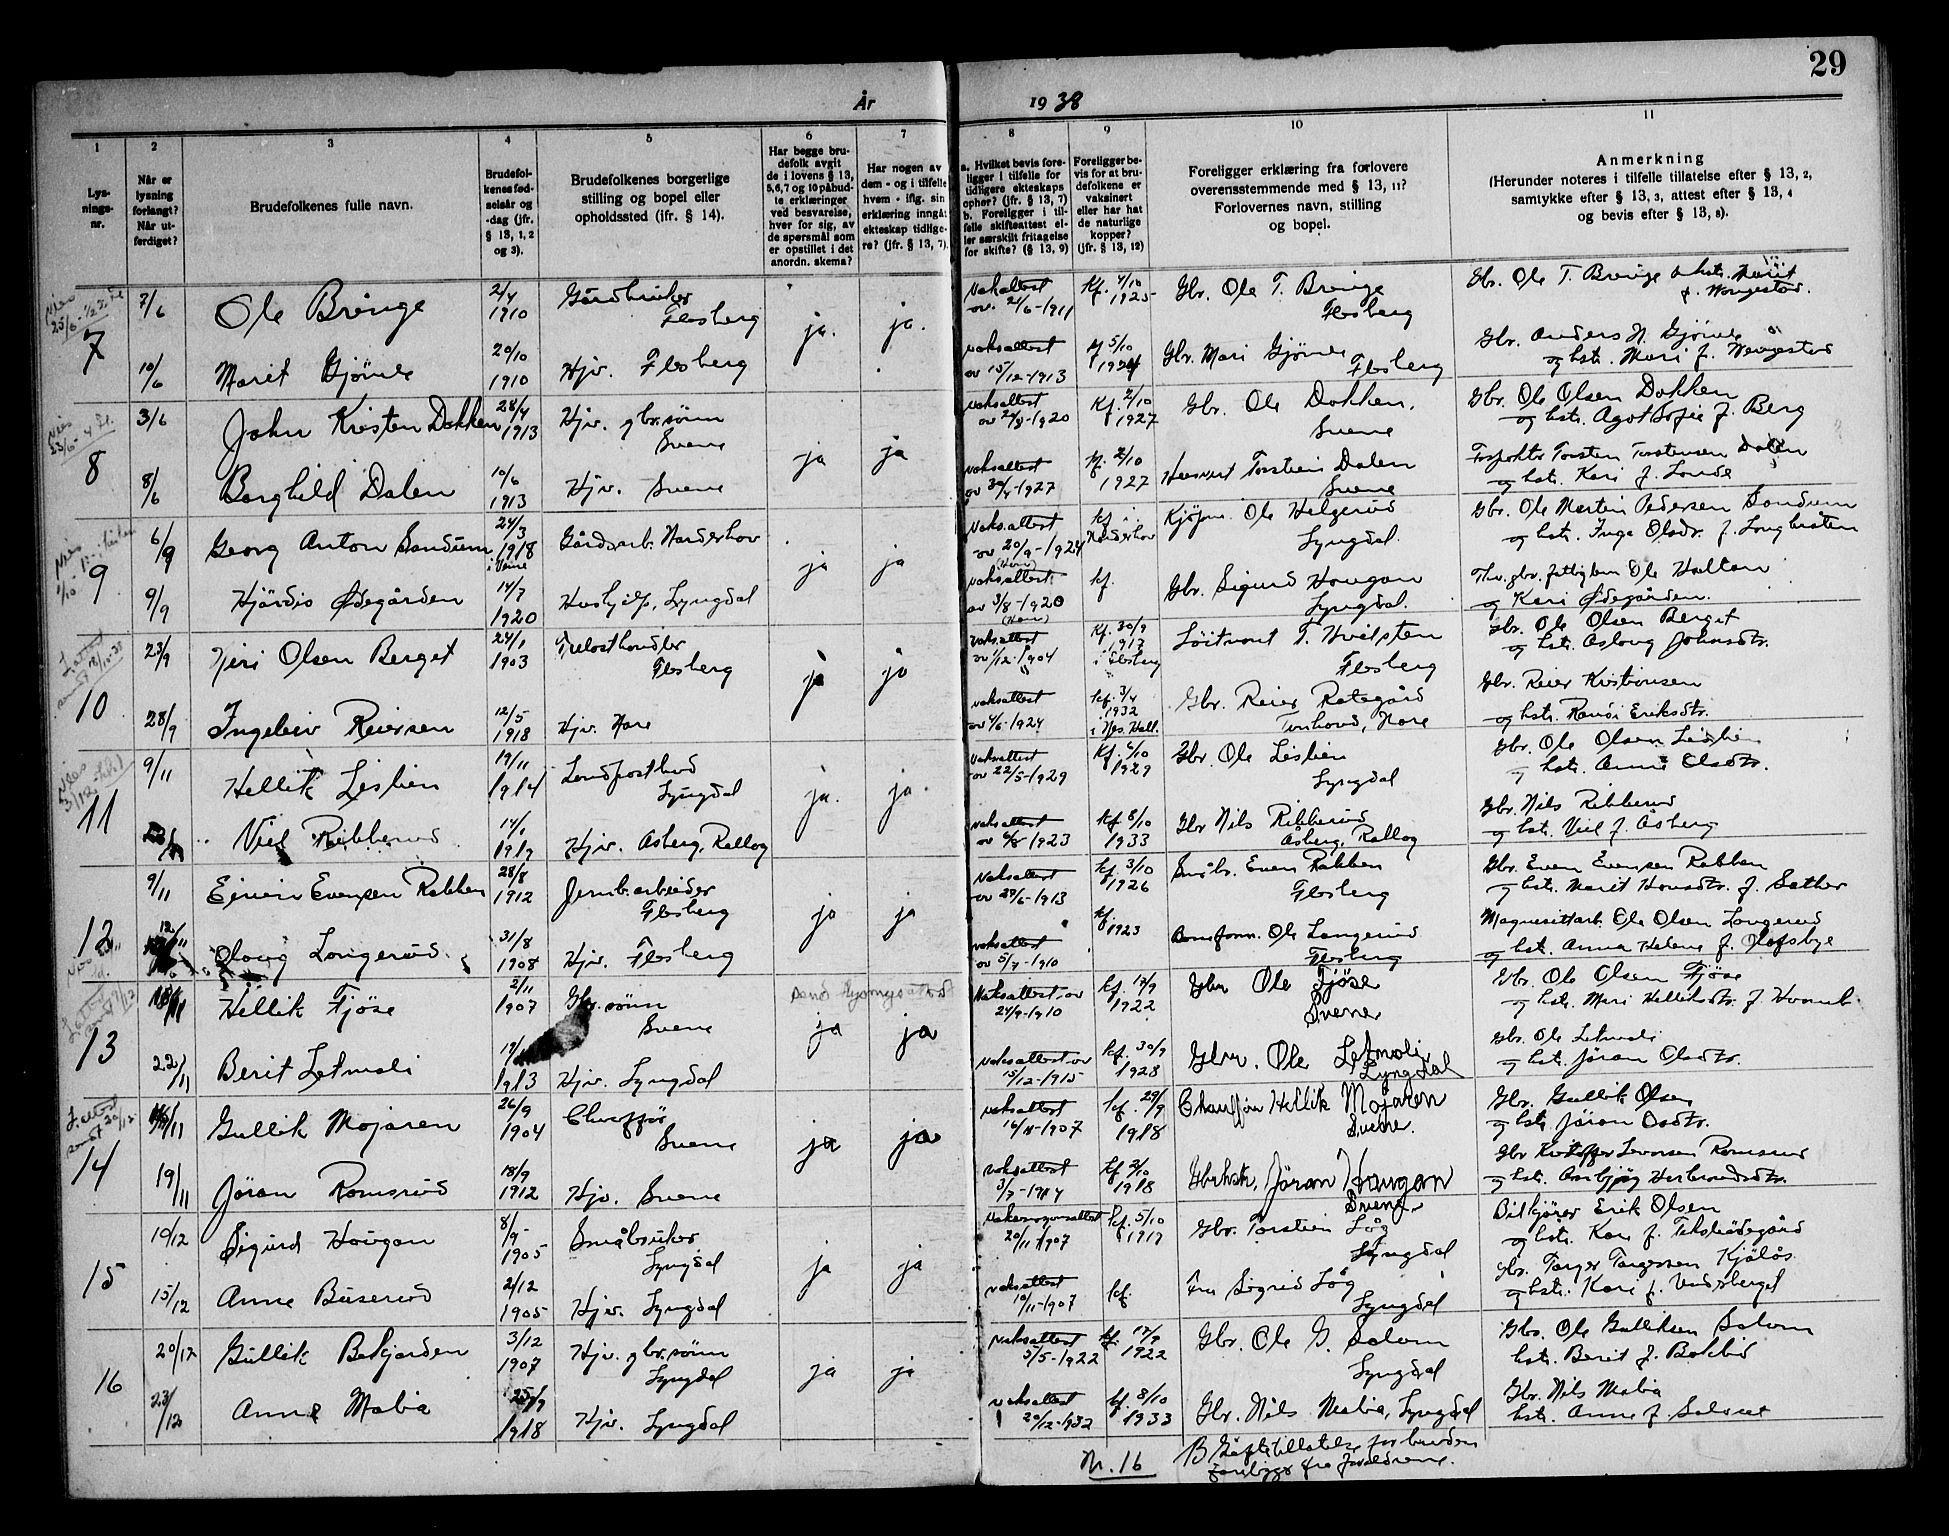 29
År 1938
1
2
3
4
5
6
7
8
9
10
11
Lysningsnr.
Når er lysning forlangt? Når utferdiget?
Brudefolkenes fulle navn.
Brudefolkenes fødselsår og -dag (jfr. § 13, 1, 2 og 3).
Brudefolkenes borgerlige stilling og bopel eller opholdssted (jfr. § 14).
Har begge brudefolk avgit de i lovens § 13, 5,6,7 og 10 påbudte erklæringer ved besvarelse, hver for sig, av de spørsmål som er opstillet i det anordn. skema?
Har nogen av dem - og i tilfelle hvem - iflg. sin erklæring inngått ekteskap tidligere? (jfr. § 13, 7).
a. Hvilket bevis foreligger i tilfelle for tidligere ekteskaps ophør? (jfr. § 13, 7) b. Foreligger i tilfelle skifteattest eller særskilt fritagelse for skifte? (§ 13, 9)
Foreligger bevis for at brudefolkene er vaksinert eller har hat de naturlige kopper? (jfr. § 13, 12)
Foreligger erklæring fra forlovere overensstemmende med § 13, 11? Forlovernes navn, stilling og bopel.
Anmerkning (Herunder noteres i tilfelle tillatelse efter § 13, 2, samtykke efter § 13, 3, attest efter § 13, 4 og bevis efter § 13, 8).
7
7/6 Ole Bringe 2/4 1910 Gårdbruker Flesberg ja. ja. Vaksattest av 21/6-1911 Kf. 4/10 1925 Gbr. Ole T. Bringe Flesberg Gbr. Ole T. Bringe o hstr. Marit f. Wongestad.
10/6 Marit Gjömle 20/10 1910 Hjv. Flesberg vaksattest av 15/12-1913 kf 5/10 1924 Gbr. Mari Gjömle Flesberg Gbr. Anders N. Gjömle og hstr. Mari f. Wengestad
8
3/6 John Kristen Dokken 28/4 1913 Hjv. gbr.sönn Svene ja ja vaksattest av 24/8-1920 Kf. 2/10 1927 Gbr. Ole Dokken. Svene Gbr. Ole Olsen Dokken og hstr. Agot Sofie f. Berg
8/6 Borghild Dalen 10/6 1913 Hjv. Svene vaksattest av 30/4-1927 kf. 2/10 1927 Torstein Dalen Svene Torsten Torstensen Dalen og hstr. Kari f. Lande
9
6/9 Georg Anton Sandum 24/3 1918 Gårdsarb. Norderhov ja ja Vaks.attest av 20/9-1924 kf. i Norderhov Kjøpm. Ole Helgerud Lyngdal. Gbr. Ole Martin Pedersen Sandum og hstr. Inga Olsdr. f.
9/9 Hjördis Ødegården 14/7 1920 Hushjelp, Lyngdal vaks.attest av 3/8-1920 kf. Gbr. Sigurd Hougan Lyngdal. Ole Halton og Kari Ødegården.
10
23/9 Olsen Berget 24/1 1903 Trelasthandler Flesberg ja ja vaks.attest av 1/12-1904 Kf. 30/9 1917 i Flesberg Löitnant T. Hvitsten Flesberg Gbr. Ole Olsen Berget og hstr. Aslaug Johnsdtr.
28/9 Ingeleiv Reiersen 12/5 1918 Hjv. Nore vaksattest av 4/6-1924 kf. 3/4 1932 i Nes. Hall. Gbr. Reier Rotegård Tunhovd, Nore Gbr. Reier Kristiansen og hstr. Randi Eriksdtr.
11
9/11 Hellik Leslien 19/11 1914 Landpostbud Lyngdal ja. ja. Vaksattest av 22/5-1929 Kf. 6/10 1929 Gbr. Ole Leslien Lyngdal Gbr. Ole Olsen Leslien og hstr. Anne Olsdtr.
Viel Ribberud 14/1 1919 Hjv. Åsberg, Rollag vaksattest av 6/8-1923 Kf 8/10 1933 Gbr Nils Ribberud Åsberg, Rollag Gbr. Nils Ribberud og hstr. Viel f. Åsberg
12
9/11 Ejvin Evensen Rabben 28/8 1912 Jernb.arbeider Flesberg ja ja Vaksattest av 29/6-1913 kf. 3/10 1926 Småbr. Even Rabben Flesberg Gbr. Even Evensen Rabben og hstr. Marit Hansdtr. f. Sather
12/11 Olaug Langerud 31/8 1908 Hjv. Flesberg vaksattest av 5/7-1910 kf. 1923 Ole Langerud Flesberg Magnesittarb. Ole Olsen Langerud og hst. Anna Helene f. Olafsbye
13
Hellik Fjöse 2/11 1907 Gbr.sönn Svene ja ja Vaksattest av 24/9-1910 kf. 17/9 1922 Gbr Ole Fjöse Svene Gbr. Ole Olsen Fjöse og hstr. Mari Helliksdtr. f.
22/11 Berit Letmoli 1913 Hjv. Lyngdal Vaksattest av 15/12-1915 kf. 30/9 1928 Gbr. Ole Letmoli Lyngdal Gbr. Ole Letmoli og hstr. Jöran Olsdtr.
14
Gullik Mojaren 26/9 1904 Chauffør Svene ja ja vaksattest 16/11-1907 kf. 29/9 1918 Chauffør Hellik Mojaren Svene. Gbr. Gullik Olsen og hstr. Jöran Olsdtr.
19/11 Jöran Romsrud 18/9 1912 Hjv. Svene vaksattest 3/7-1914 kf 3/10 1918 Jöran Haugan Svene. Gbr Romsrud og hstr.
15
10/12 Sigurd Hougan 8/9 1905 Småbruker Lyngdal ja ja 20/11 1907 kf. 5/10 1919 Gbr. Torstein Låg Lyngdal Bilkjører Erik Olsen og hstr. Kari f.
15/12 Anne Buserud 2/12 1905 Hjv. Lyngdal vaksattest 10/11-1907 kf. Fru Sigrid Låg Lyngdal Gbr. Torger Torgersen Kjölås og hstr. Kari f. Underberget
16
20/12 Gullik Bekjorden 3/12 1907 Hjv. gbr.sönn Lyngdal ja ja vaksattest 5/5-1922 kf. 17/9 1922 Gbr. Ole G. Solum Lyngdal Gbr. Ole Gulliksen Solum hstr. Berit f.
23/12 Anne Mobia 1918 Hjv. Lyngdal vaksattest 20/12-1932 kf. 8/10 1933 Gbr. Nils Mobia, Lyngdal Gbr. Nils Mobia hstr. Anne f.
Nr. 16 B Giftetillatelse for bruden foreligger fra foreldrene.